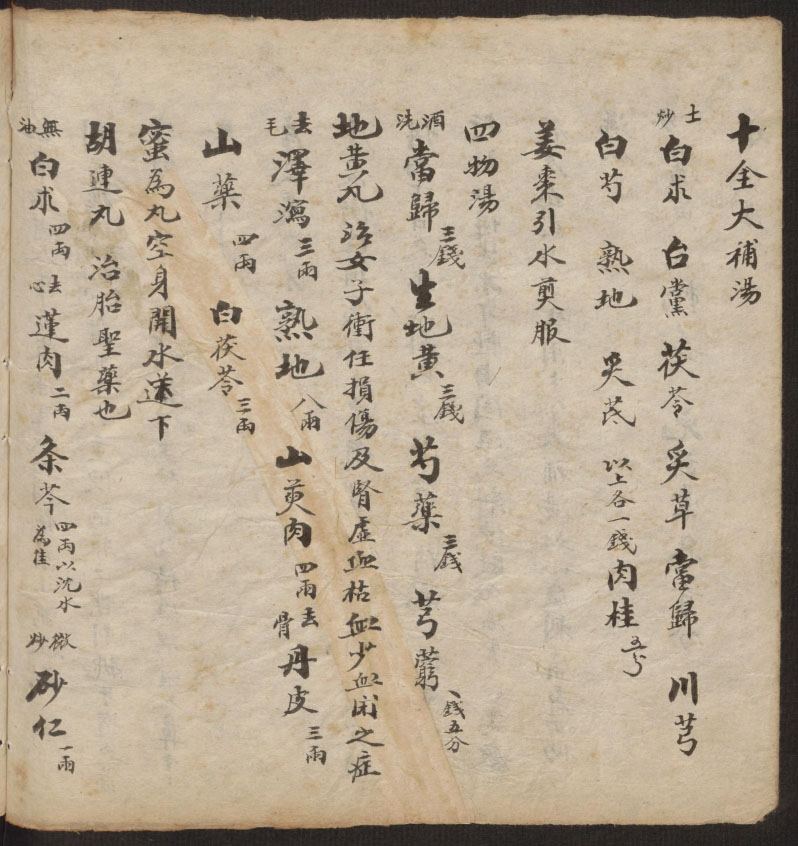 十全大補湯
土炒白求 台黨 茯苓 炙草 當歸 川芎
白芍 熟地 炙芪 以上各一錢 肉桂 五分
姜棗引水煎服
四物湯
酒洗當歸 三錢 生地黃 三錢 芍藥 三錢 芎藭 一錢五分
地黃丸 治女子衝任損傷及腎虛血枯血少血閉之症
去毛澤瀉 三兩 熟地 八兩 山萸肉 四兩去骨 丹皮 三兩
山藥 四兩 白茯苓 三兩
蜜為丸空身開水送下
胡連丸 治胎聖藥也
無油白求 四兩 去心蓮肉 二兩 条芩 四兩以沉水為佳 微炒砂仁 一兩